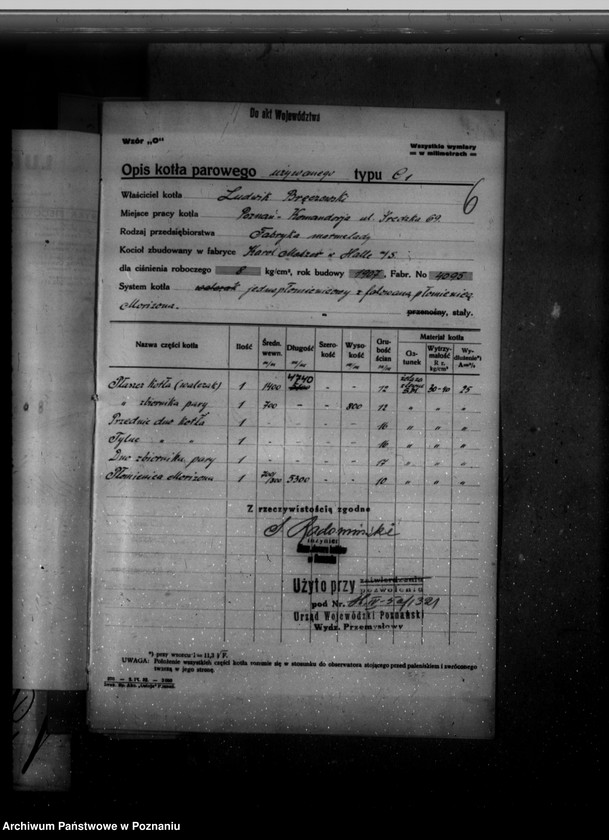 Do akt Województwa
Wzór „O"
Wszystkie wymiary
— w milimetrach —
6
Opis kotła parowego używanego typu C1
Właściciel kotła Ludwik
Miejsce pracy kotła Poznań - Komandorja ul. Średzka 69.
Rodzaj przedsiębiorstwa Fabryka marmelady
Kocioł zbudowany w fabryce Karol w Halle %S
dla ciśnienia roboczego 8 kg/cm², rok budowy 1907. Fabr. No 4095
System kotła walczak jednopłomienicowy z falowaną płomienicą
Morizona. przenośny, stały.
Nazwa części kotła Ilość Średn. wewn. m/m Długość m/m Szerokość Wysokość m/m Grubość ścian m/m Materjał kotła Gatunek Wytrzymałość R z. kg/cm² Wydłużenie*) A=%
Płaszcz kotła (walczak) 1 1400 4740 - - 12 30-40 25
„ zbiornika pary 1 700 - - 800 12 „ „ „
Przednie dno kotła 1 - - - - 16 „ „ „
Tylne „ „ 1 - - - - 16 „ „ „
Dno zbiornika pary 1 - - - - 17 „ „ „
Płomienica Morizona 1 700/800 5300 - - 10 „ „ „
Z rzeczywistością zgodne
S. Radomiński
inżynier
Użyto przy zatwierdzeniu
pozwoleniu
pod Nr.
Urząd Wojewódzki Poznański
Wydz. Przemysłowy
*) przy wzorcu l = 11,3 √F.
UWAGA: Położenie wszystkich części kotła rozumie się w stosunku do obserwatora stojącego przed paleniskiem i zwróconego
twarzą w jego stronę.
Archiwum Państwowe w Poznaniu